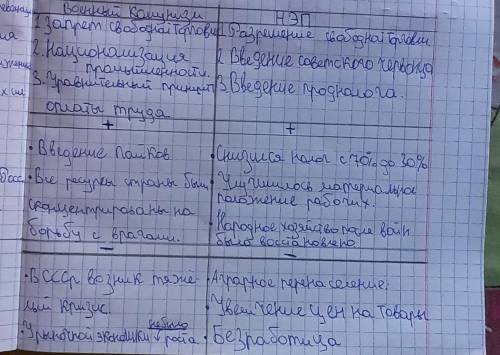 Военный Комунизм
1. Запрет свободной торговли
2. Национализация
промышленности.
3. Уравнительный принцип
оплаты труда
+
• Введение пайков
• Все ресурсы страны были
сконцентрированы на
борьбу с врагами.
−
• В СССР возник тяжё-
лый кризис.
не было
У рыночной экономики роста
НЭП
1. Разрешение свободной торговли
2. Введение советского червонца
3. Введение продналога.
+
• Снизился налог с 70% до 30%
• Улучшилось материальное
положение рабочих.
• Народное хозяйство после войн
было восстановлено.
−
• Аграрное перенаселение.
• Увеличение цен на товары
• Безработица